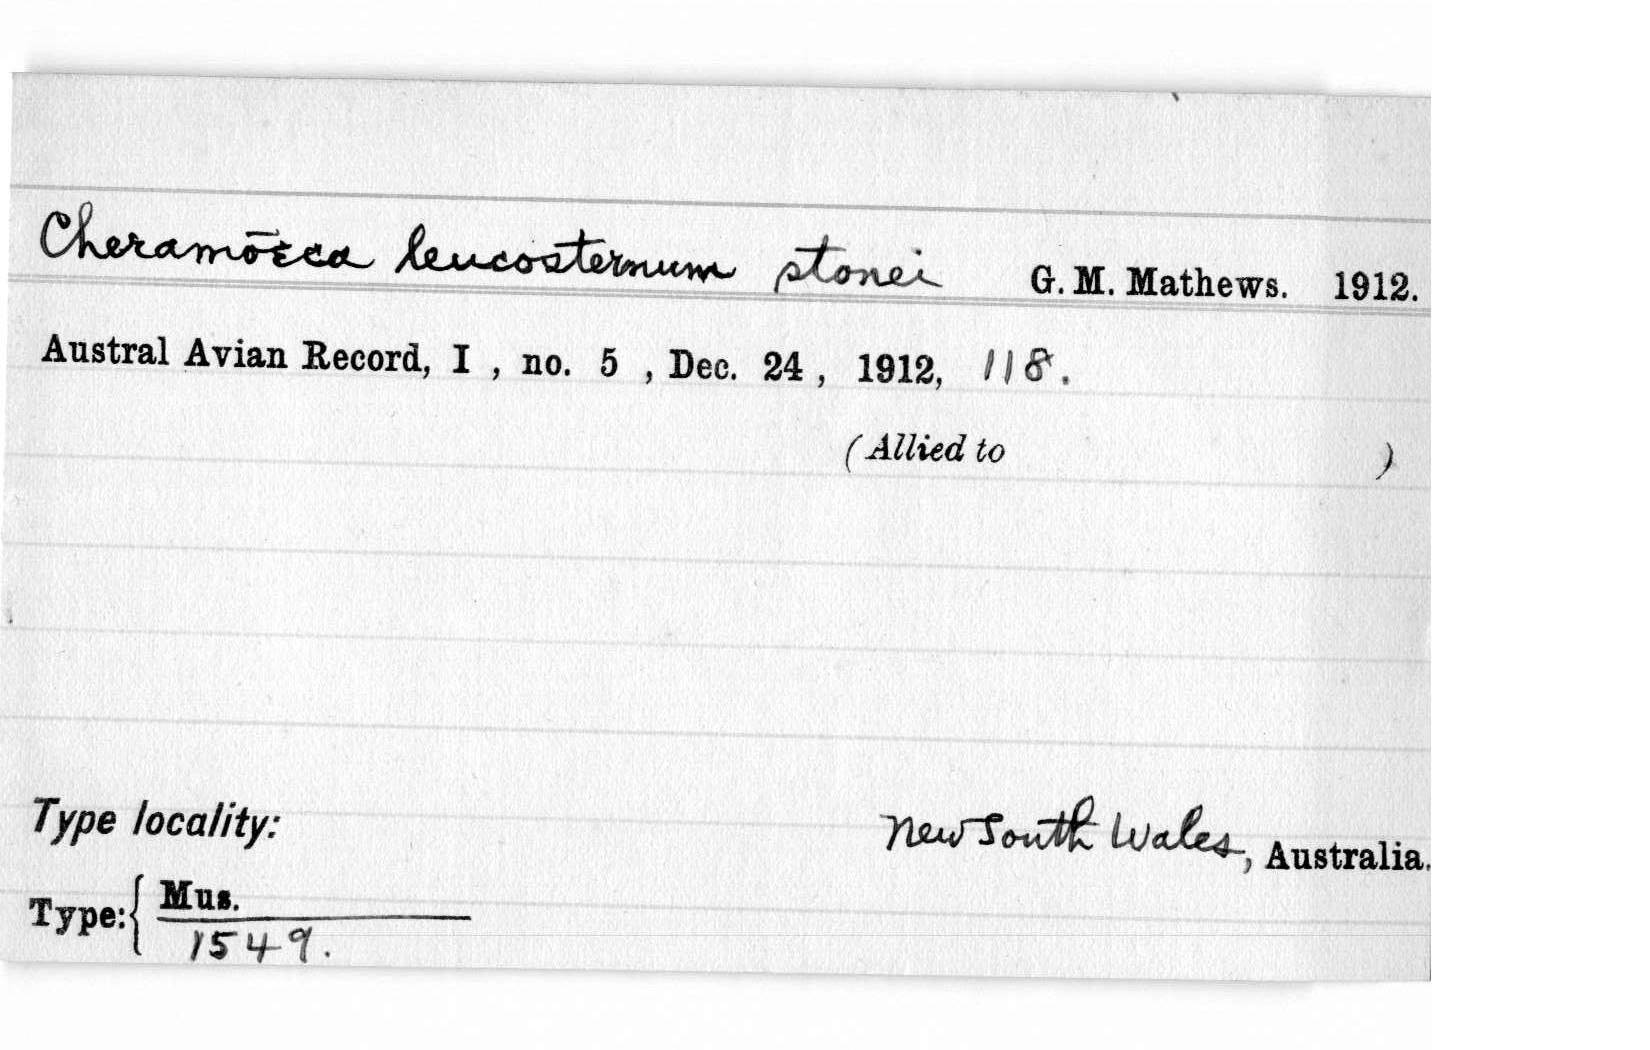 Cheramōeca leucosternum stonei G. M. Mathews. 1912.
Austral Avian Record, I , no. 5 , Dec. 24 , 1912, 118.
(Allied to )
Type locality: New South Wales, Australia.
Type: { Mus.
1549.